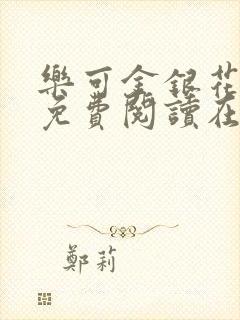 樂可金銀花
免費閱讀在
鄭莉